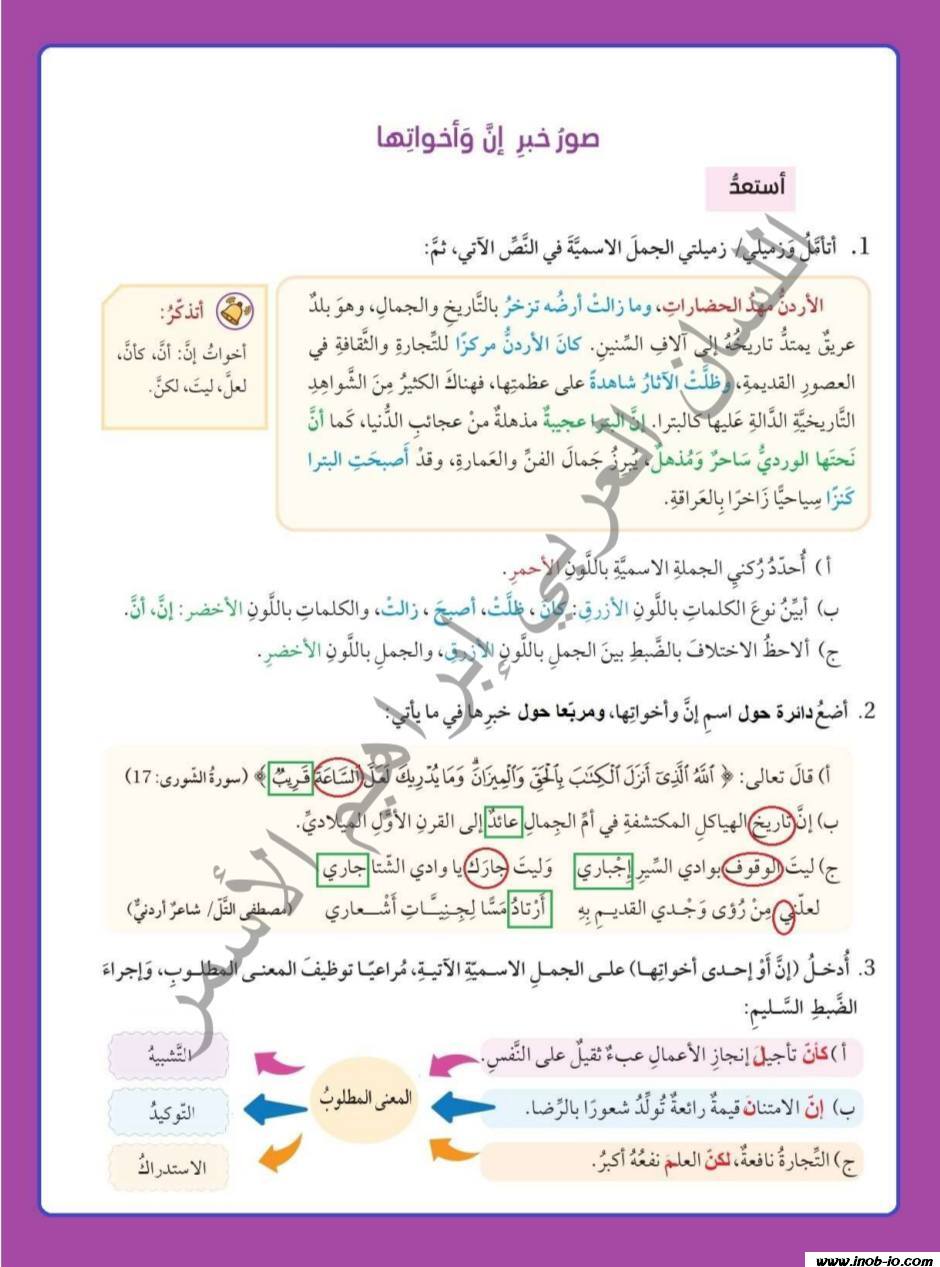 صورُ خبرِ إنَّ وَأخواتِها
أستعدُّ
1. أتأمَّلُ وَزميلي/ زميلتي الجملَ الاسميَّةَ في النَّصِّ الآتي، ثمَّ:
الأردنُّ مهدُ الحضاراتِ، وما زالتْ أرضُه تزخرُ بالتَّاريخِ والجمالِ، وهوَ بلدٌ
عريقٌ يمتدُّ تاريخُهُ إلى آلافِ السِّنينِ. كانَ الأردنُّ مركزًا للتِّجارةِ والثَّقافةِ في
العصورِ القديمةِ، وظلَّتْ الآثارُ شاهدةً على عظمتِها، فهناكَ الكثيرُ مِنَ الشَّواهدِ
التَّاريخيَّةِ الدَّالةِ عَليها كالبترا. إنَّ البترا عجيبةٌ مذهلةٌ منْ عجائبِ الدُّنيا، كَما أنَّ
نَحتَها الورديَّ سَاحرٌ وَمُذهلٌ، يُبرِزُ جَمالَ الفنِّ والعَمارةِ، وقدْ أَصبحَتِ البترا
كَنزًا سِياحيًّا زَاخرًا بِالعَراقةِ.
أتذكّرُ:
أخواتُ إنَّ: أنَّ، كأنَّ،
لعلَّ، ليتَ، لكنَّ.
أ ) أُحدّدُ رُكنيِ الجملةِ الاسميَّةِ باللَّونِ الأحمرِ.
ب) أبيِّنُ نوعَ الكلماتِ باللَّونِ الأزرقِ: كانَ، ظلَّتْ، أصبحَ ، زالتْ، والكلماتِ باللَّونِ الأخضر: إنَّ، أنَّ.
ج) ألاحظُ الاختلافَ بالضَّبطِ بينَ الجملِ باللَّونِ الأزرقِ، والجملِ باللَّونِ الأخضرِ.
2. أضعُ دائرة حول اسمِ إنَّ وأخواتِها، ومربّعا حول خبرِها في ما يأتي:
أ) قالَ تعالى: ﴿ ٱللَّهُ ٱلَّذِىٓ أَنزَلَ ٱلْكِتَٰبَ بِٱلْحَقِّ وَٱلْمِيزَانَ ۗ وَمَا يُدْرِيكَ لَعَلَّ ٱلسَّاعَةَ قَرِيبٌ ﴾ (سورةُ الشّورى: 17)
ب) إنَّ تاريخَ الهياكلِ المكتشفةِ في أمِّ الجِمالِ عائدٌ إلى القرنِ الأوَّلِ الميلاديِّ.
ج) ليتَ الوقوفَ بوادي السِّيرِ إجْباري وَليتَ جارَك يا وادي الشّتا جاري
لعلّني مِنْ رُؤى وَجْدي القديمِ بِهِ أَرْتادُ مَسًّا لِجِنِيَّاتِ أَشْعاري (مصطفى التَّلّ/ شاعرٌ أردنيٌّ)
3. أُدخلُ (إنَّ أَوْ إحدى أخواتِها) على الجملِ الاسميّةِ الآتيةِ، مُراعيًا توظيفَ المعنى المطلوبِ، وَإجراءَ
الضَّبطِ السَّليمِ:
أ ) كأنّ تأجيلَ إنجازِ الأعمالِ عبءٌ ثقيلٌ على النَّفسِ.
ب) إنّ الامتنانَ قيمةٌ رائعةٌ تُولِّدُ شعورًا بالرِّضا.
ج) التِّجارةُ نافعةٌ، لكنّ العلمَ نفعُهُ أكبرُ.
المعنى المطلوبُ
التَّشبيهُ
التّوكيدُ
الاستدراكُ
اللسان العربي إبراهيم الأسمر
www.jnob-jo.com